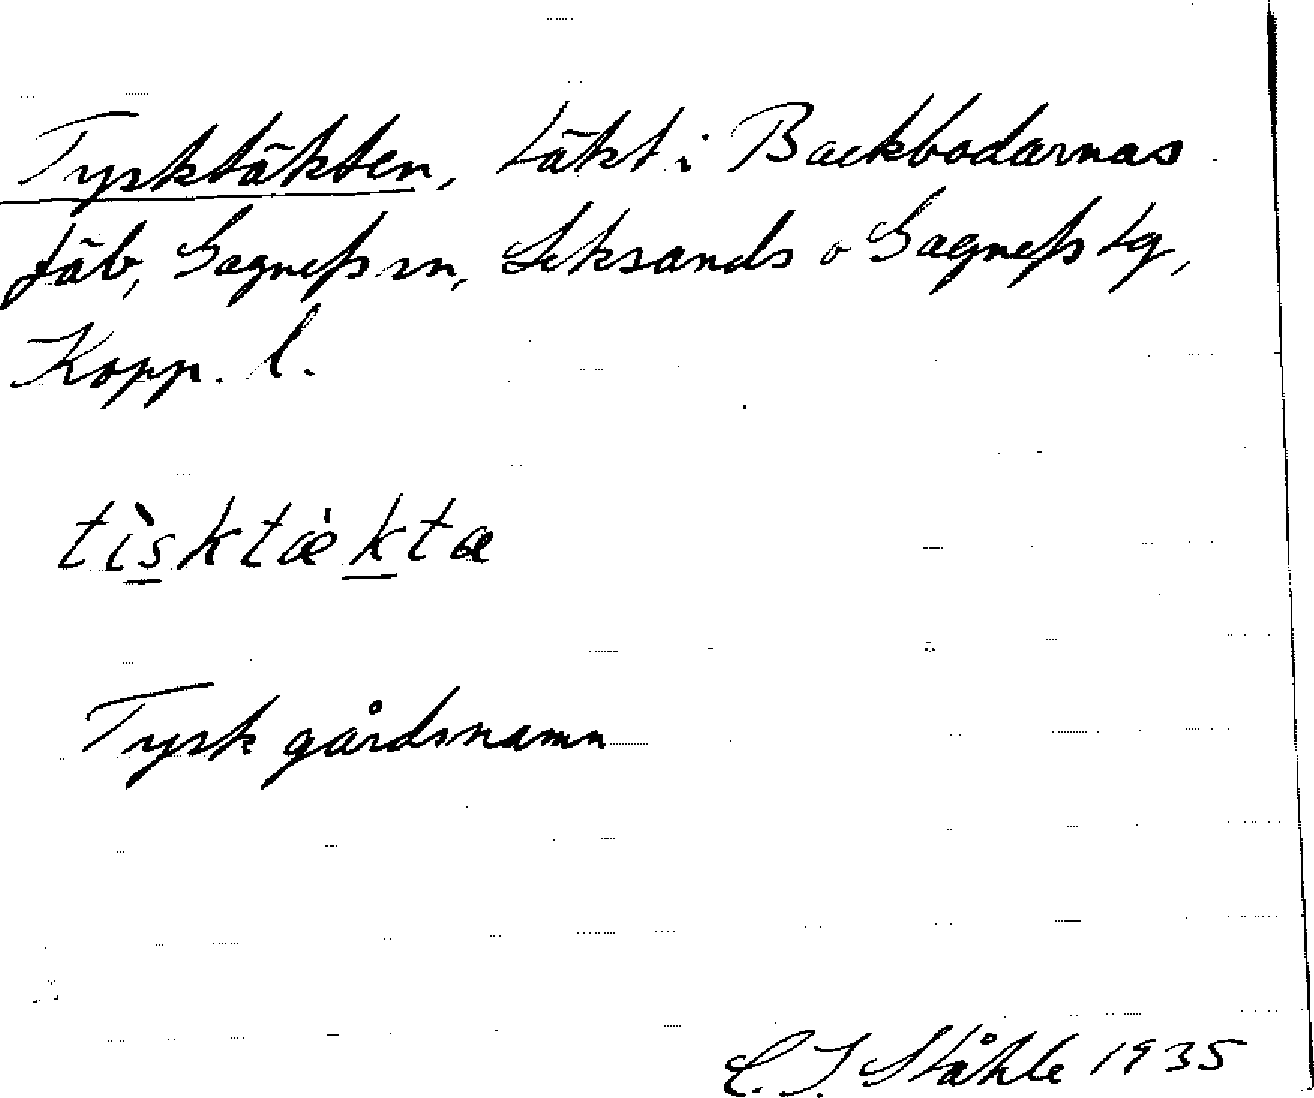 Tysktäkten, täkt i Backbodarnas
fäb, Gagnefs sn, Leksands o Gagnefs tg,
Kopp. l.
tìsktæ̀ktæ
Tysk gårdsnamn
C. I. Ståhle 1935